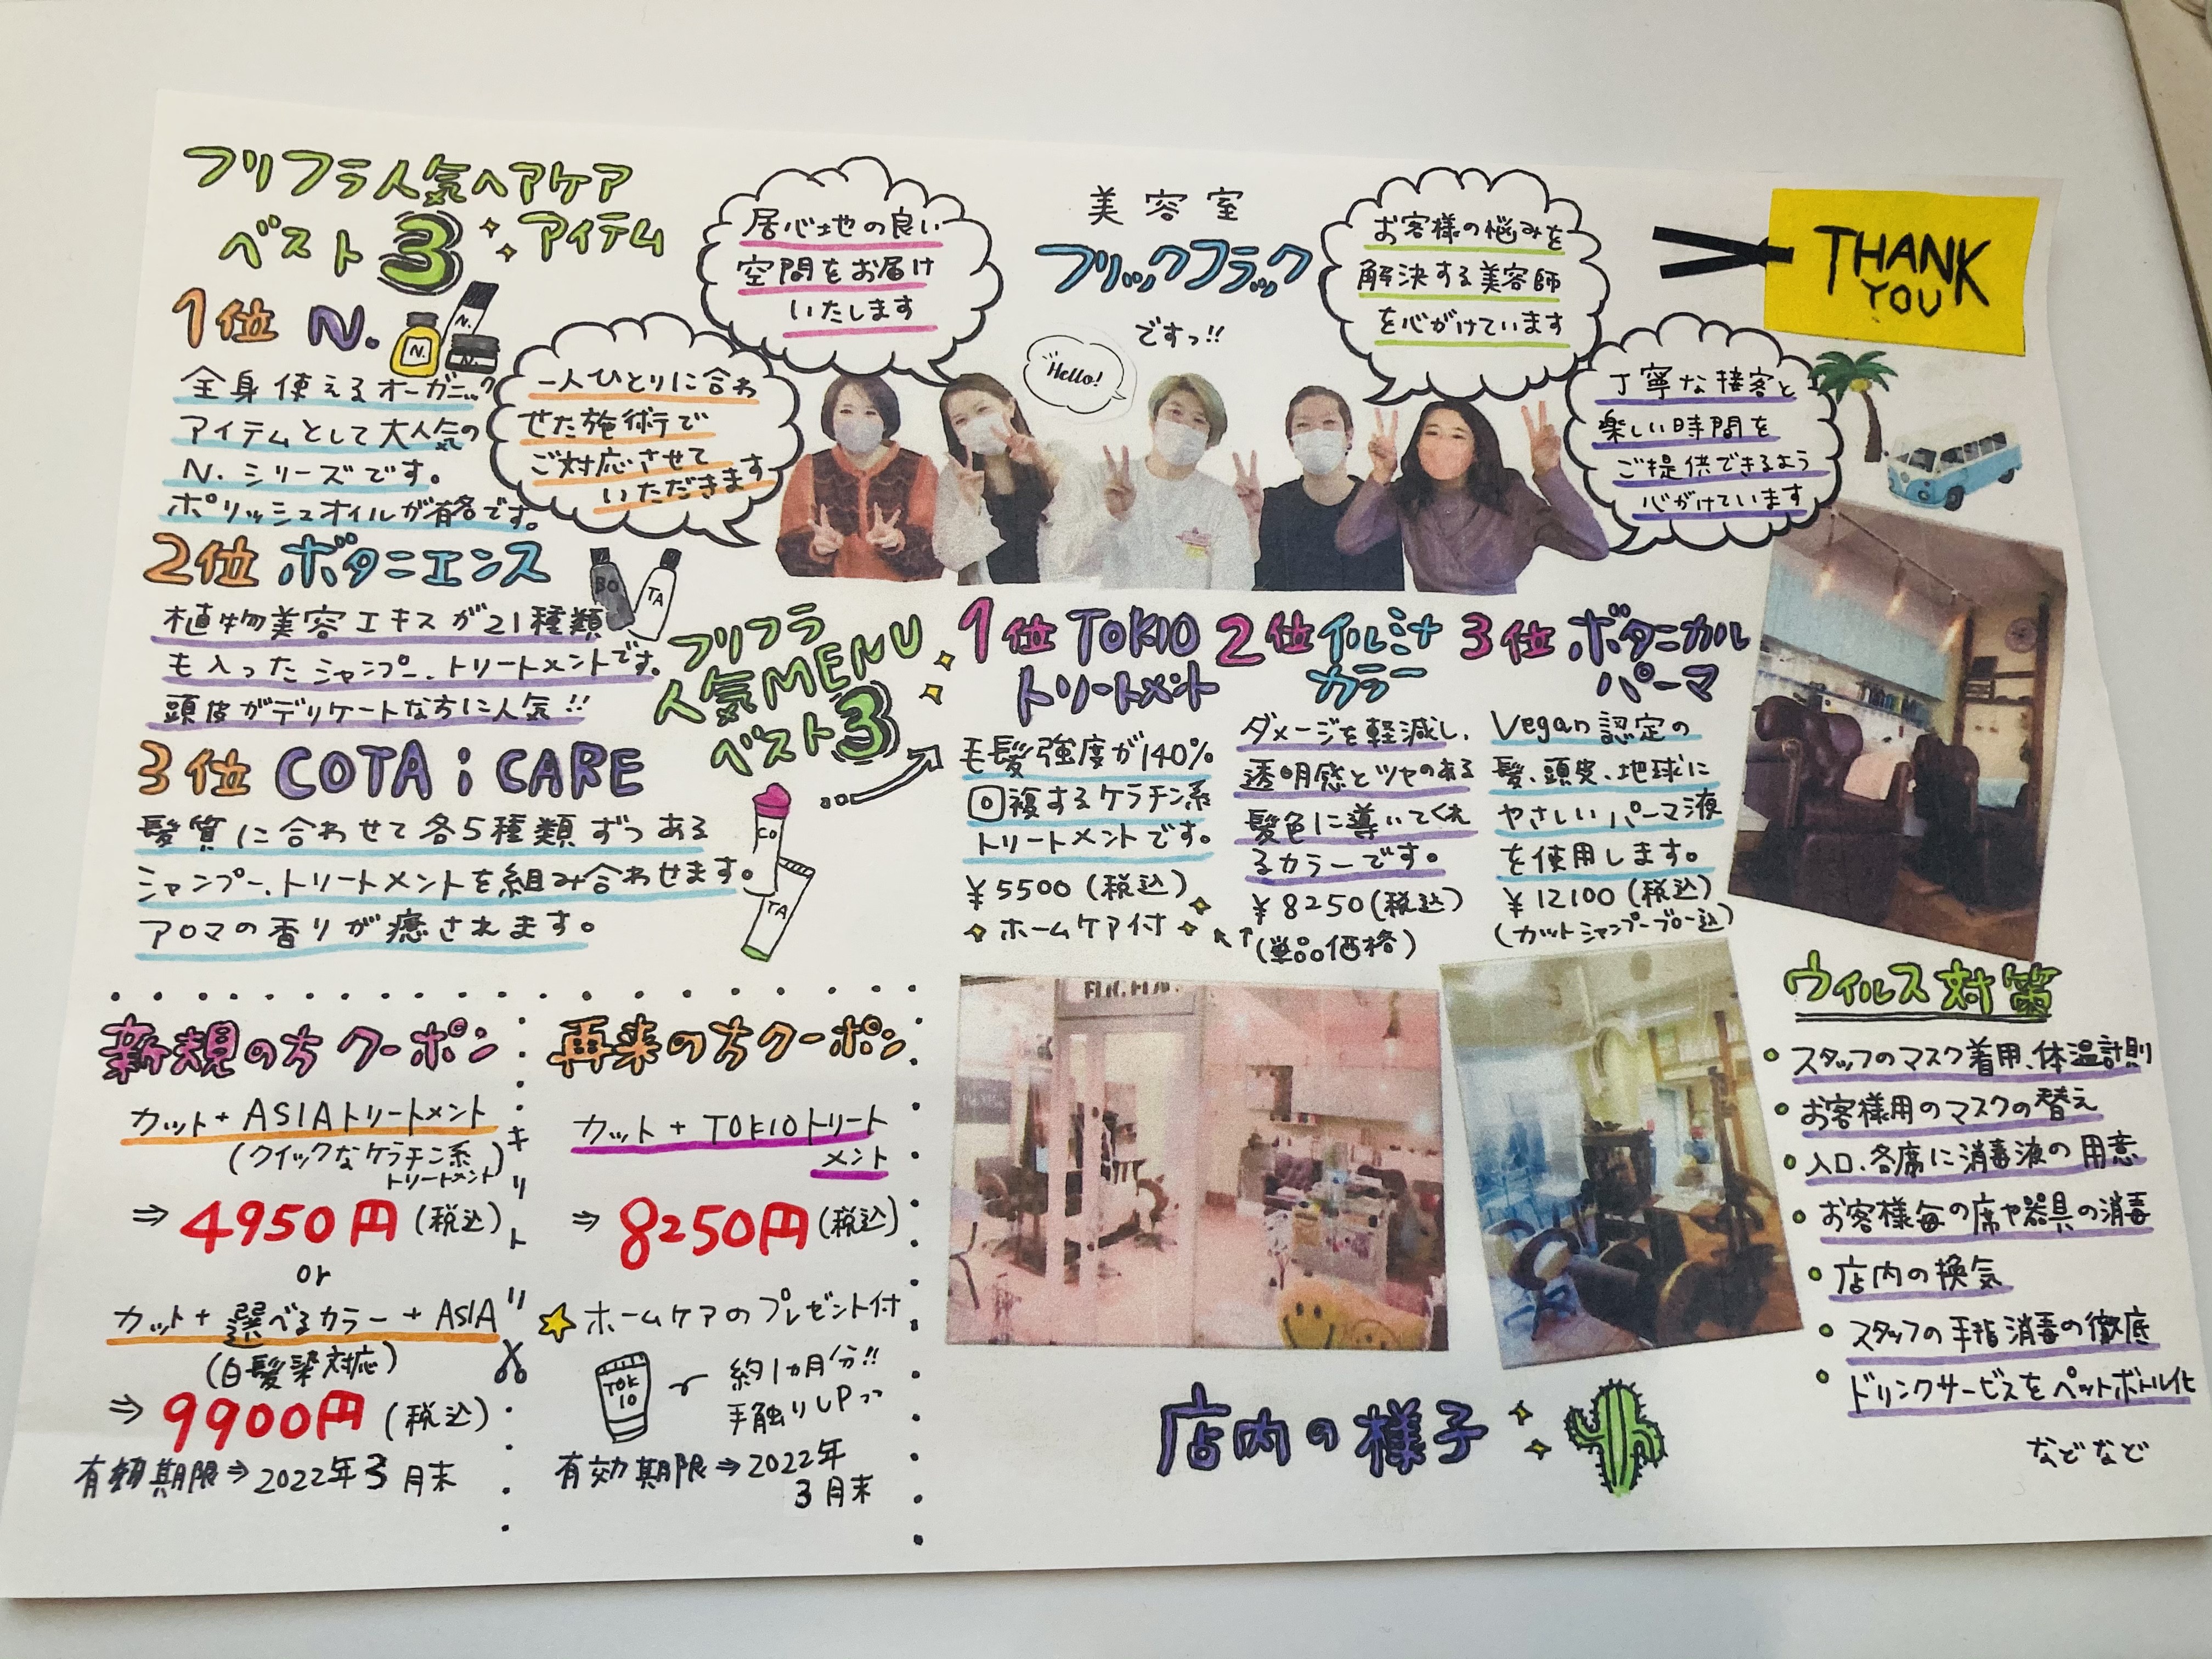 フリフラ人気ヘアケア
ベスト3 アイテム
1位 N.
N.
N.
N.
全身使えるオーガニック
アイテムとして大人気の
N.シリーズです。
ポリッシュオイルが有名です。
2位 ボタニエンス
BO
TA
植物美容エキスが21種類
も入ったシャンプー、トリートメントです。
頭皮がデリケートな方に人気!!
3位 COTA i CARE
髪質に合わせて各5種類ずつある
シャンプー、トリートメントを組み合わせます。
アロマの香りが癒されます。
CO
TA
居心地の良い
空間をお届け
いたします
一人ひとりに合わ
せた施術で
ご対応させて
いただきます
美容室
フリックフラック
ですっ!!
Hello!
お客様の悩みを
解決する美容師
を心がけています
丁寧な接客と
楽しい時間を
ご提供できるよう
心がけています
THANK
YOU
フリフラ
人気MENU
ベスト3
1位 TOKIO
トリートメント
毛髪強度が140%
回複するケラチン系
トリートメントです。
¥5500(税込)
ホームケア付
2位 イルミナ
カラー
ダメージを軽減し、
透明感とツヤのある
髪色に導いてくれ
るカラーです。
¥8250(税込)
(単品価格)
3位 ボタニカル
パーマ
Vegan認定の
髪、頭皮、地球に
やさしいパーマ液
を使用します。
¥12100(税込)
(カットシャンプーブロー込)
新規の方クーポン
カット+ASIAトリートメント
(クイックなケラチン系
トリートメント)
⇒4950円(税込)
or
カット+選べるカラー+ASIA
(白髪染対応)
⇒9900円(税込)
有効期限⇒2022年3月末
キリトリ
再来の方クーポン
カット+TOKIOトリート
メント
⇒8250円(税込)
ホームケアのプレゼント付
TOK
IO
約1ヵ月分!!
手触りUPっっ
有効期限⇒2022年
3月末
店内の様子
ウイルス対策
・スタッフのマスク着用、体温計測
・お客様用のマスクの替え
・入口、各席に消毒液の用意
・お客様毎の席や器具の消毒
・店内の換気
・スタッフの手指消毒の徹底
・ドリンクサービスをペットボトル化
などなど